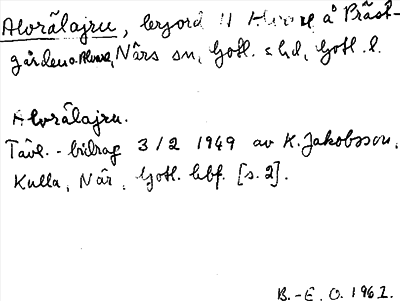 Alvrälajru, lerjord // Alvare å Präst-
gården o. Alvare, Närs sn, Gotl. s hd, Gotl. l.
Alvrälajru.
Tävl.-bidrag 3/2 1949 av K. Jakobsson,
Kulla, När, Gotl. hbf. [s. 2].
B.-E. O. 1961.